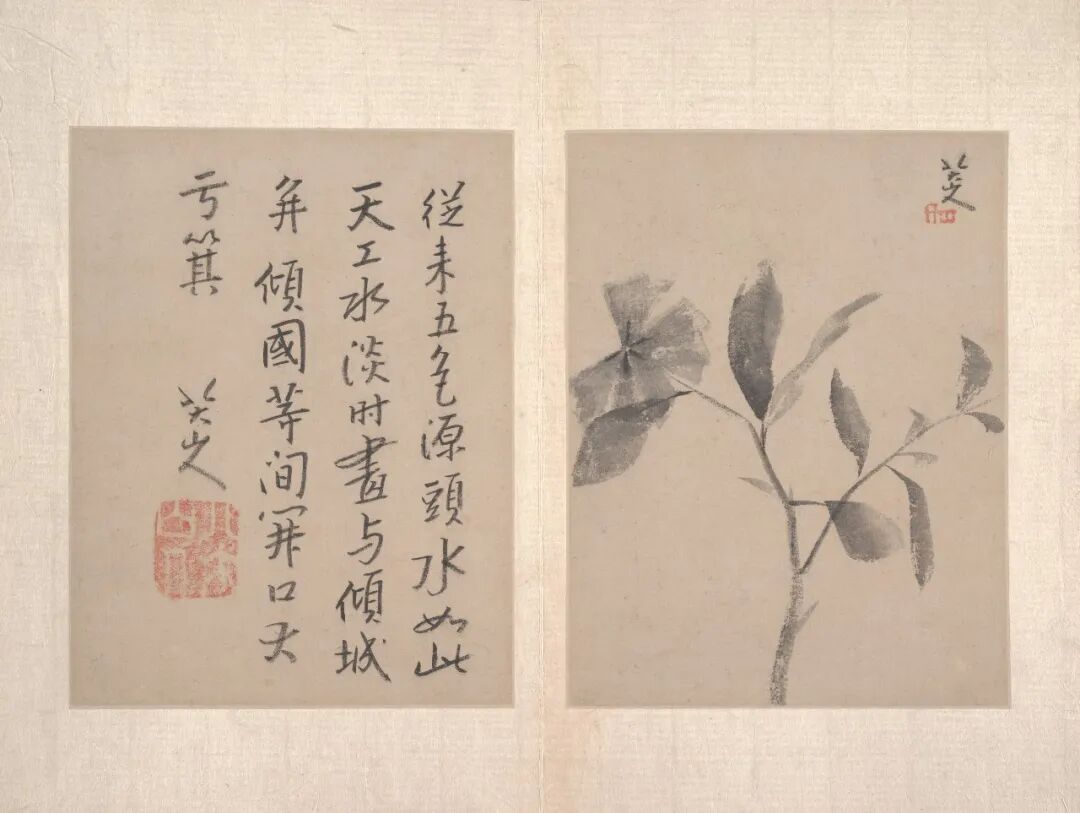 八大山人
從来五色源頭水如此
天工水淡时畫与傾城
并傾國等间開口
亏箕
八大山人